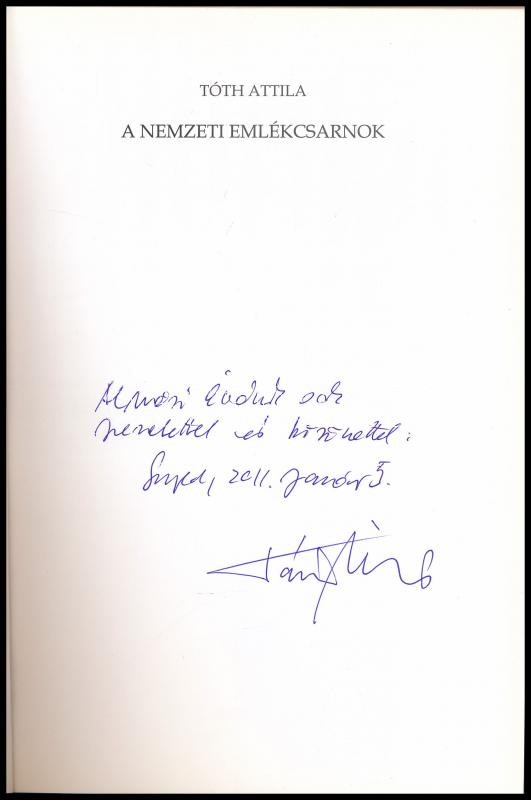 TÓTH ATTILA
A NEMZETI EMLÉKCSARNOK
Almási Évának sok
szeretettel és köszönettel:
Szeged, 2011. január 5.